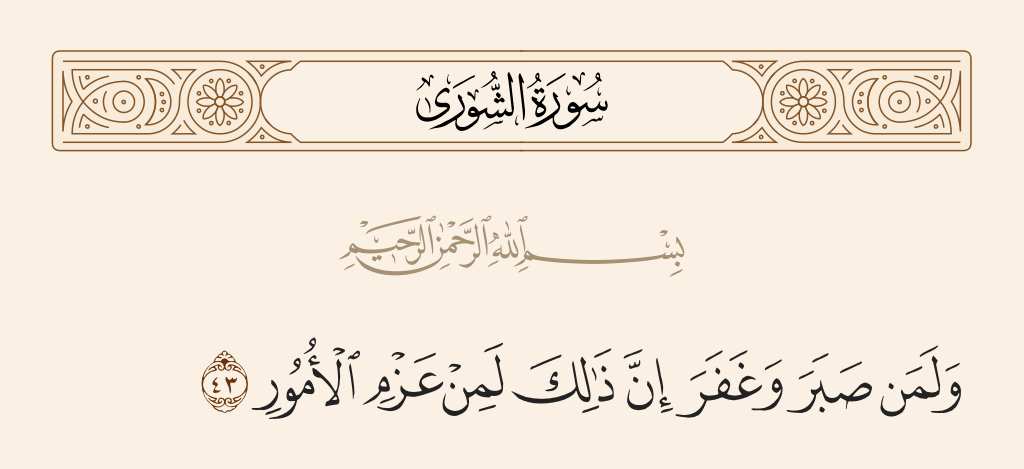 سُورَةُ الشُّورَىٰ
بِسْمِ ٱللَّهِ ٱلرَّحْمَٰنِ ٱلرَّحِيمِ
وَلَمَن صَبَرَ وَغَفَرَ إِنَّ ذَٰلِكَ لَمِنْ عَزْمِ ٱلْأُمُورِ ٤٣